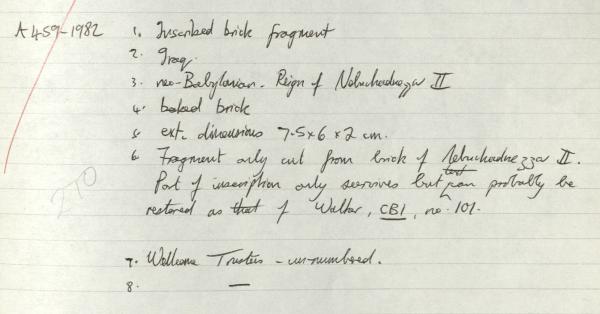 A 459-1982 1. Inscribed brick fragment
2. Iraq.
3. neo-Babylonian. Reign of Nebuchadnezzar II
4. baked brick
5 ext. dimensions 7.5x6 x 2 cm.
6 Fragment only cut from brick of Nebuchadnezzar II.
Part of inscription only survives but text can probably be
restored as that of Walker, CBI, no. 101.
7. Wellcome Trustees - un-numbered.
8. —